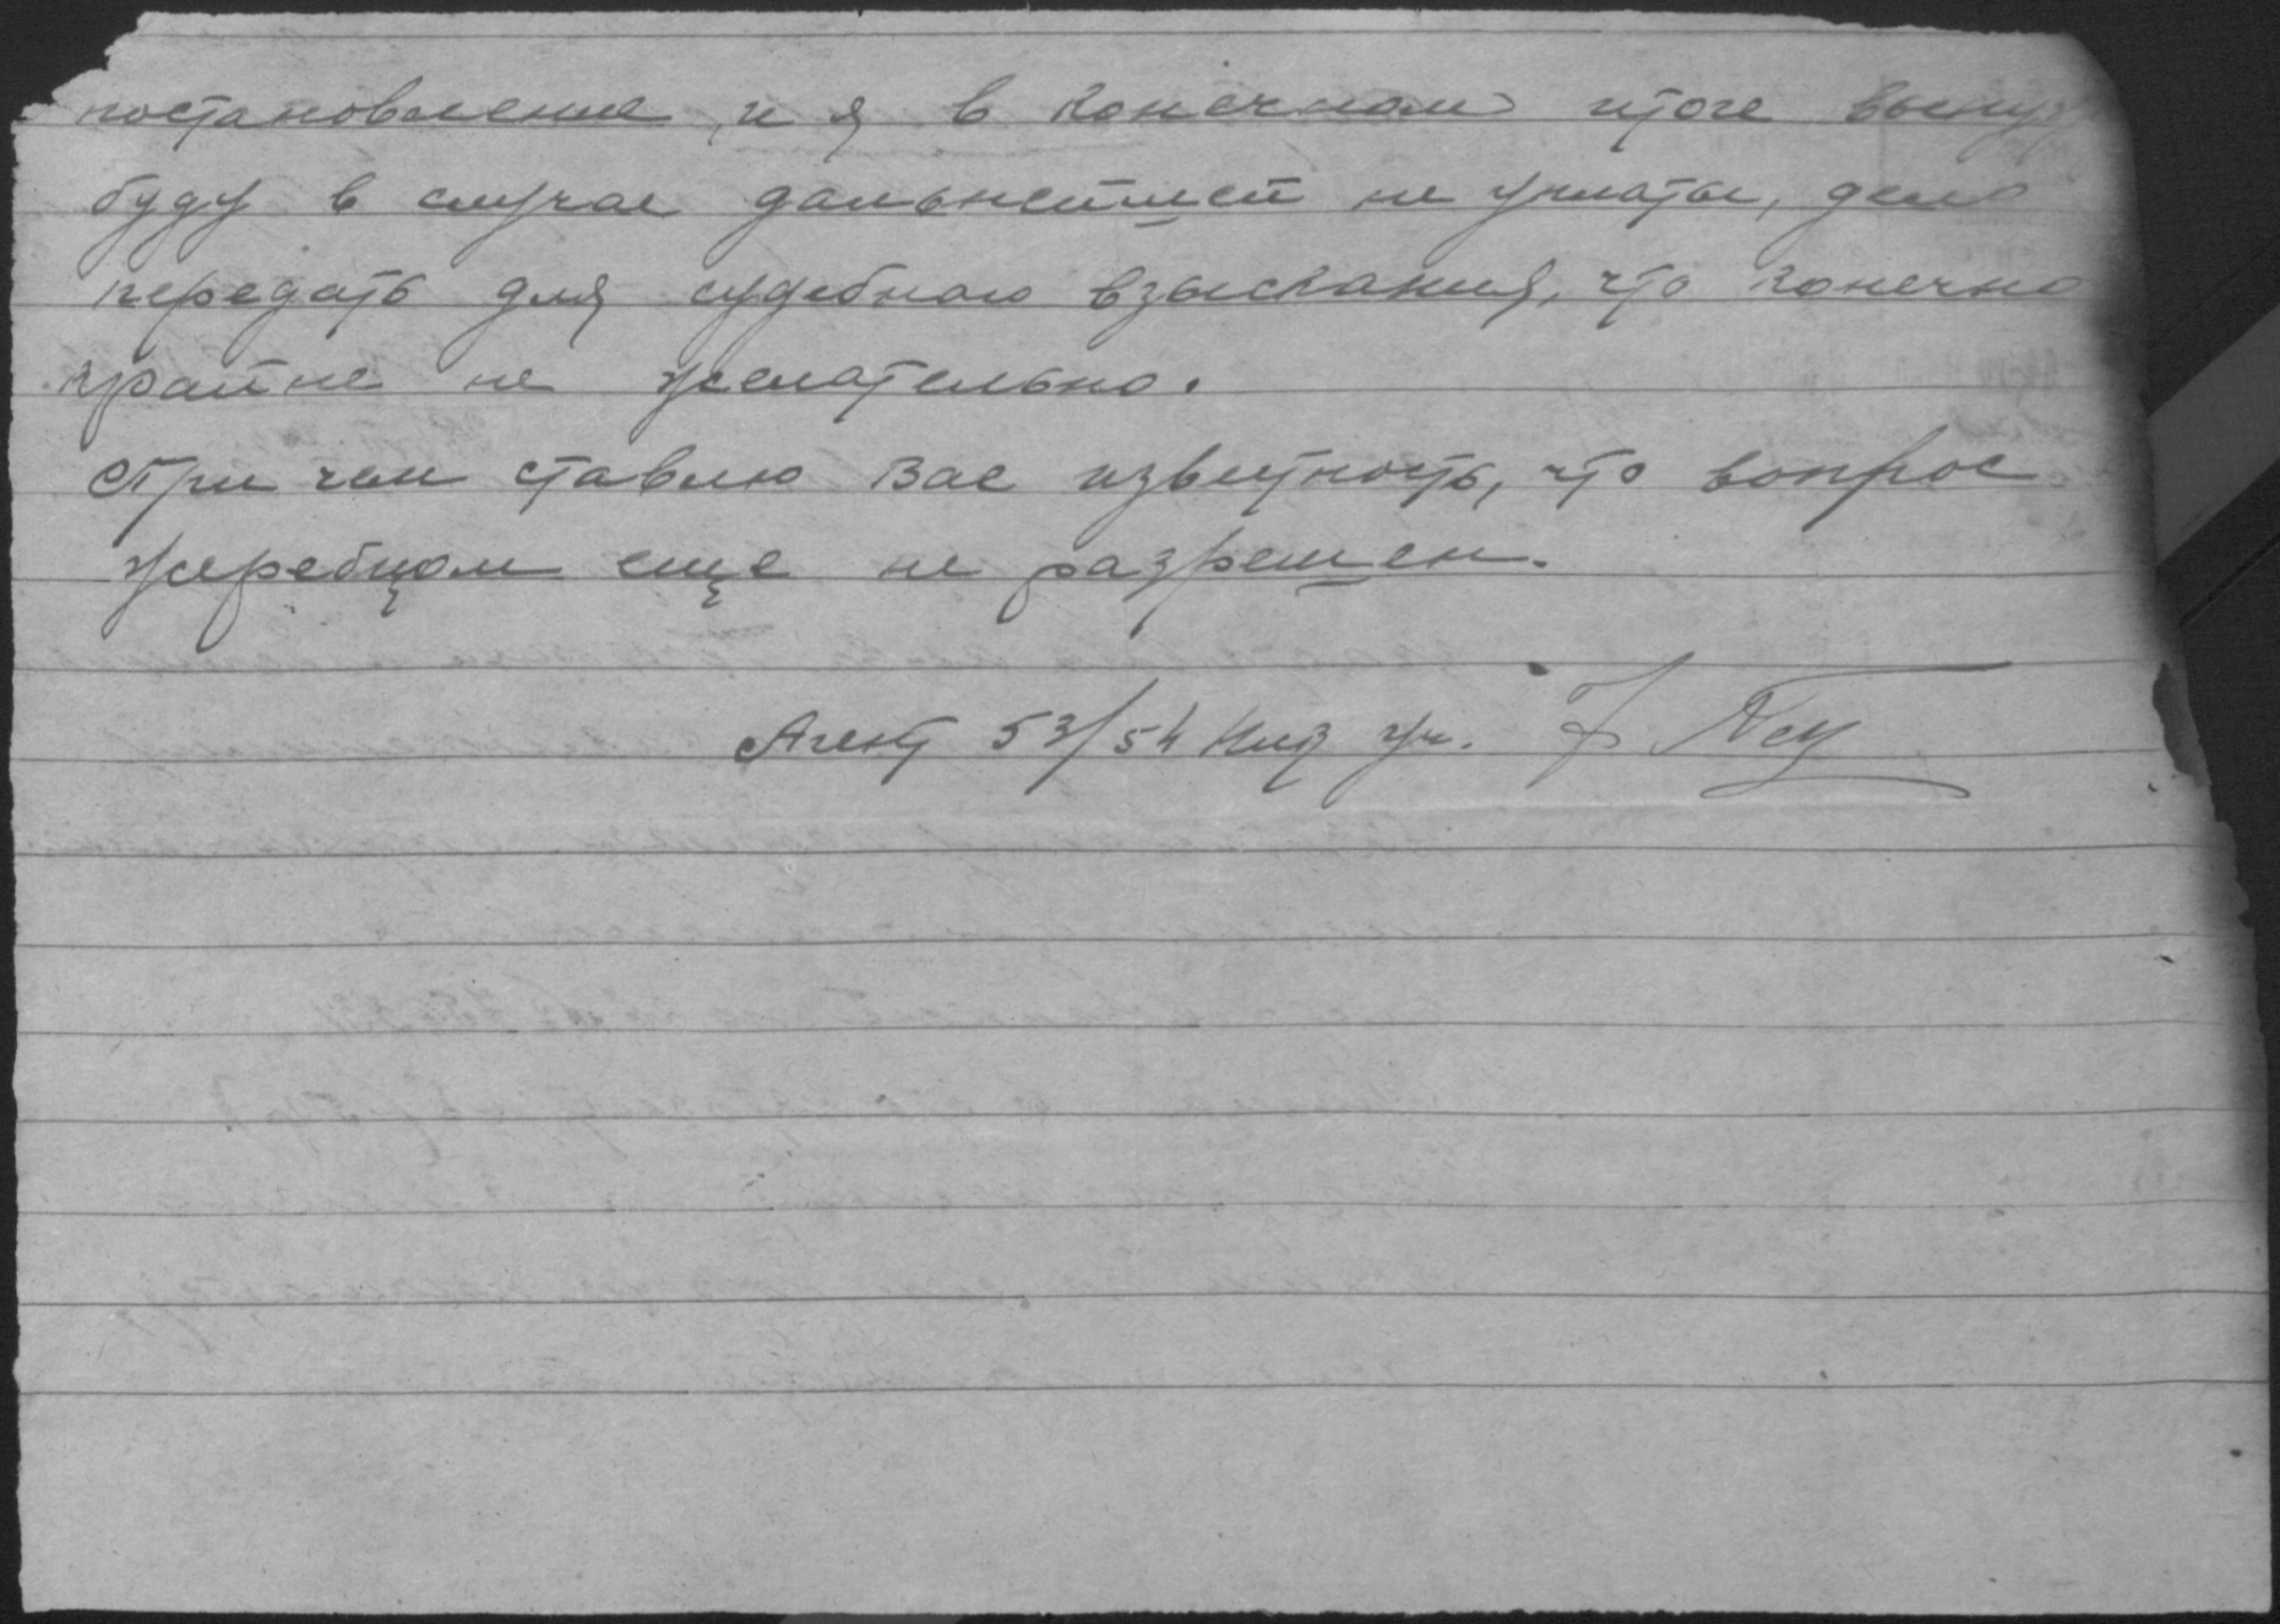 постановление, и я в конечном итоге вынуж
буду в случае дальнейшей не уплаты, дело
передать для судебного взыскания, что конечно
крайне не желательно.
При чем ставлю Вас известность, что вопрос
жеребцом еще не разрешен.
Агент 53/54 уч.